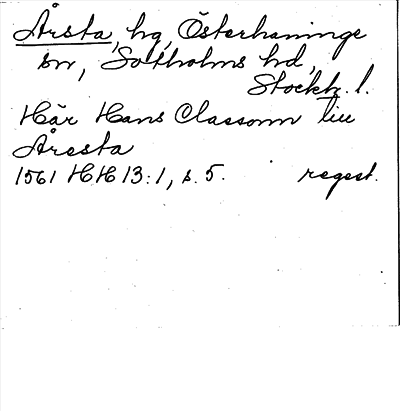 Årsta, hg, Österhaninge
sn, Sotholms hd,
Stockh. l.
Här Hans Classonn till
Åresta
1561 HH 13:1, s. 5. regest.